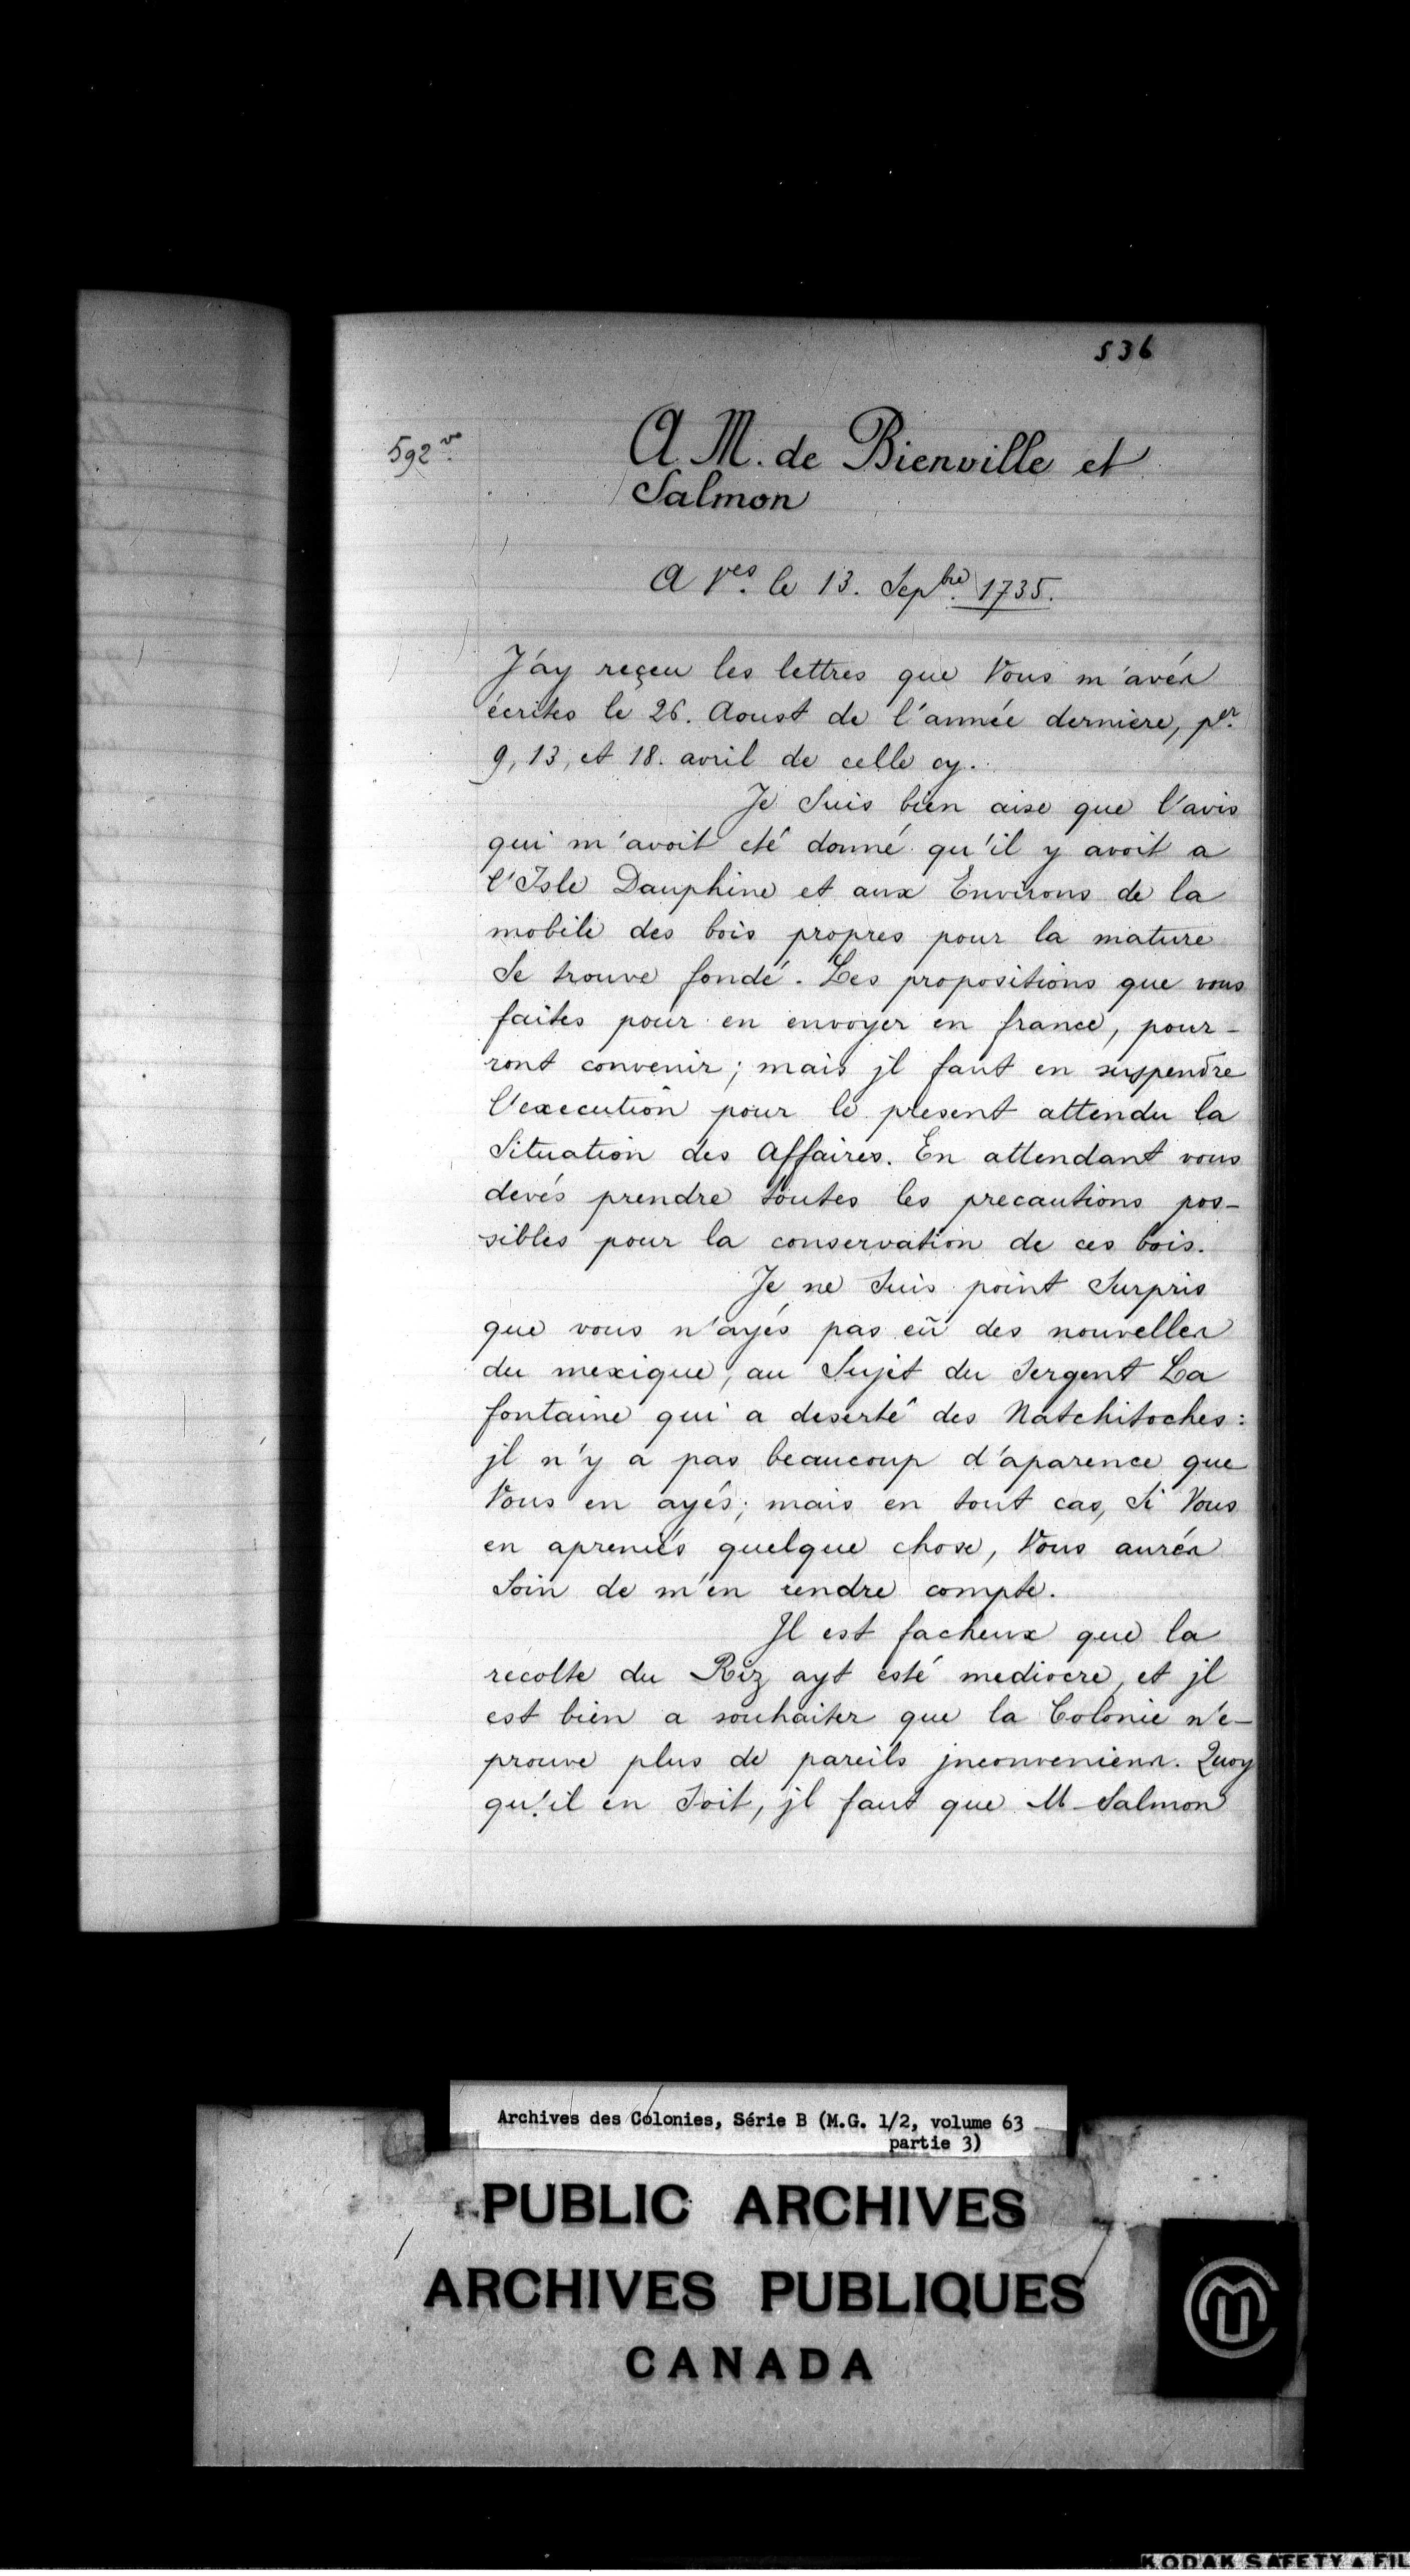 536
592 vo.
A M. de Bienville et
Salmon
A Ves. le 13. Sepbre. 1735.
J'ay reçeu les lettres que Vous m'avéz
écrites le 26. Aoust de l'année dernière, per.
9, 13, et 18. avril de celle cy.
Je Suis bien aise que l'avis
qui m'avoit eté donné qu'il y avoit a
l'Isle Dauphine et aux Environs de la
mobile des bois propres pour la mature
Se trouve fondé. Les propositions que vous
faites pour en envoyer en france, pour-
ront convenir; mais jl faut en suspendre
l'execution pour le present attendu la
Situation des Affaires. En attendant vous
devés prendre toutes les precautions pos-
sibles pour la conservation de ces bois.
Je ne Suis point Surpris
que vous n'ayés pas eü des nouvelles
du mexique, au Sujet du Sergent La
fontaine qui a deserté des Natchitoches:
jl n'y a pas beaucoup d'aparence que
Vous en ayés; mais en tout cas, Si Vous
en apreniés quelque chose, Vous auréz
Soin de m'en rendre compte.
Jl est facheux que la
recolte du Riz ayt esté mediocre, et jl
est bien a souhaiter que la Colonie n'e-
prouve plus de pareils jnconveniens. Quoy
qu'il en Soit, jl faut que M Salmon
Archives des Colonies, Série B (M.G. 1/2, volume 63
partie 3)
PUBLIC ARCHIVES
ARCHIVES PUBLIQUES
CANADA
KODAK SAFETY FIL